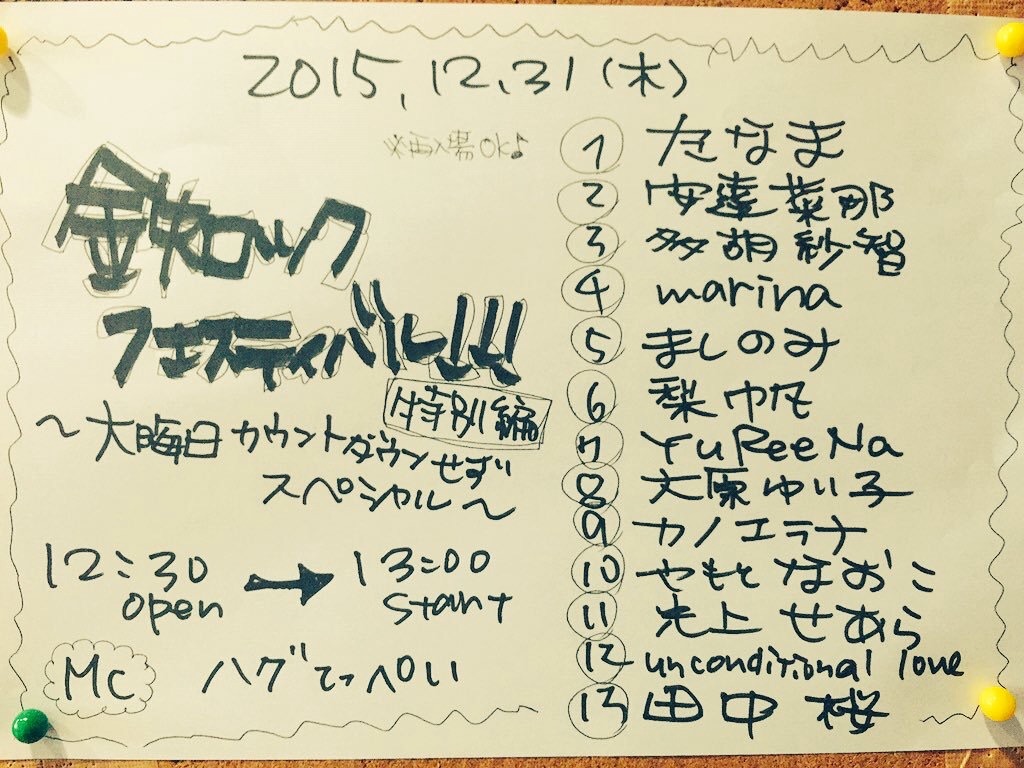 2015.12.31(木)
※再入場OK♪
金失ロック
フェスティバル!!!
特別編
～大晦日カウントダウンせずに
スペシャル～
12:30 → 13:00
open start
MC ハグてっぺい
① たなま
② 安達菜那
③ 多胡紗智
④ marina
⑤ ましのみ
⑥ 梨帆
⑦ YuReeNa
⑧ 大原ゆい子
⑨ カノエラナ
⑩ やもとなおこ
⑪ 光上せあら
⑫ unconditional love
⑬ 田中桜